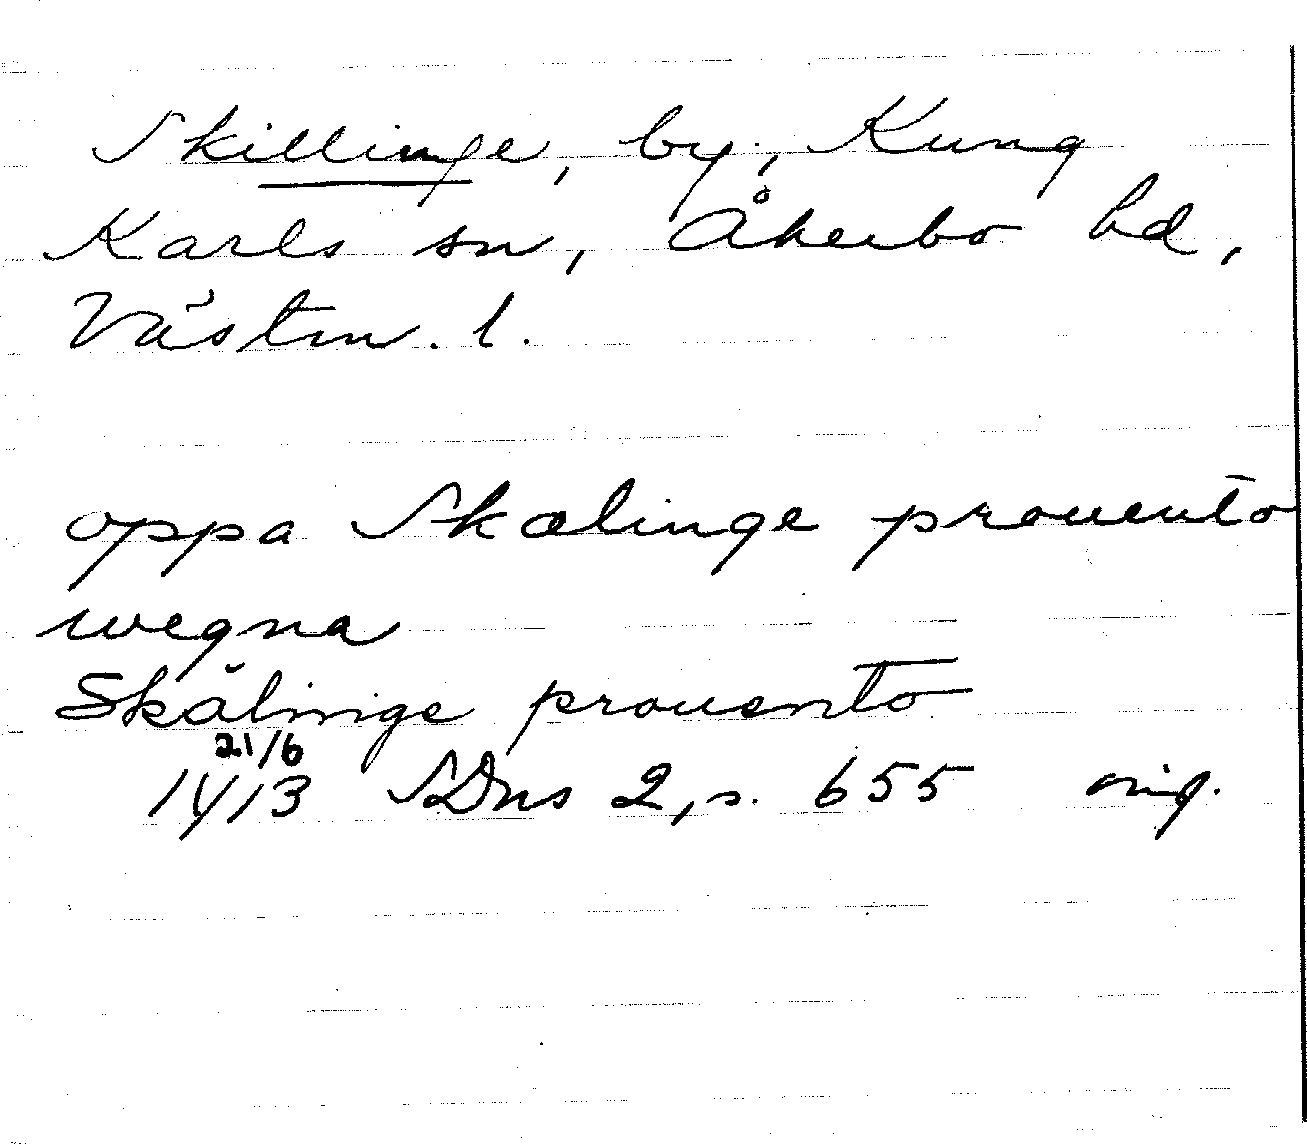 Skillinge, by, Kung
Karls sn, Åkerbo hd,
Västm. l.
oppa Skælinge prouento
wegna
Skælinge prouento
21/6
1413 SDns 2, s. 655 orig.